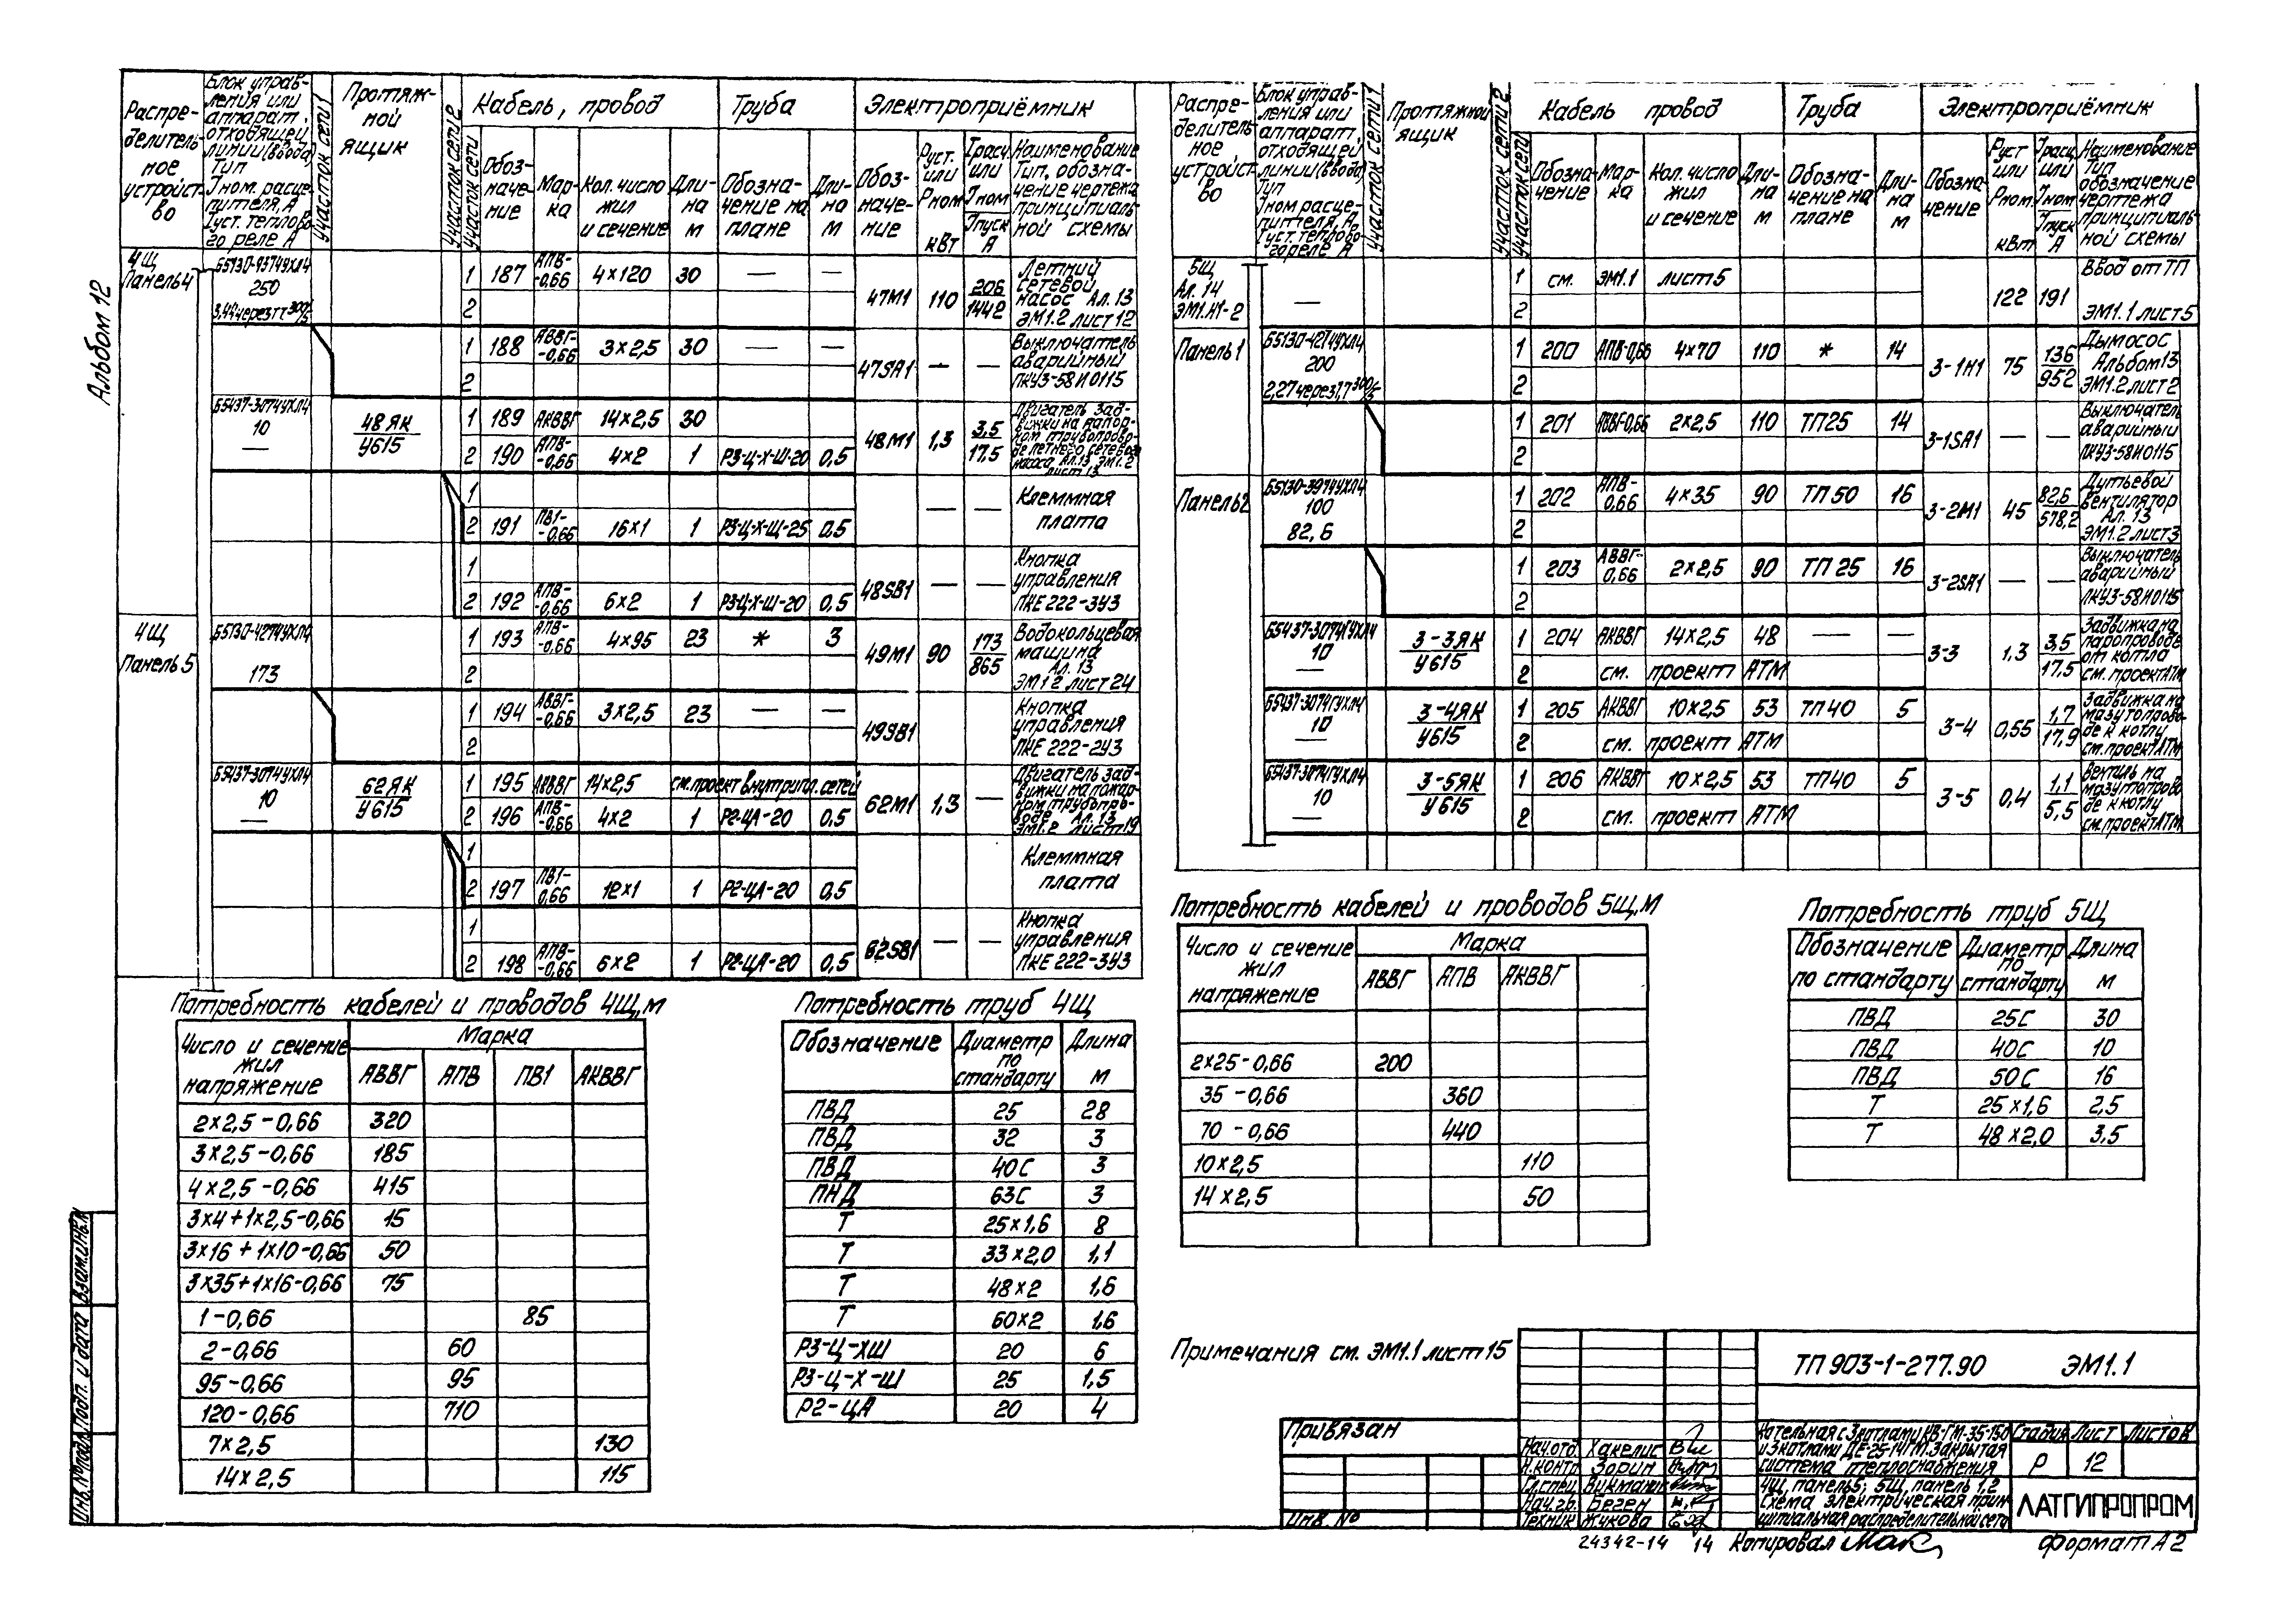 Альбом 12
Распре-
делитель-
ное
устройст-
во
Блок управ-
ления или
аппарат
отходящей
линии (ввода)
Тип
Iном. расце-
пителя, А
Iуст. теплово-
го реле А
Участок сети 1
Протяж-
ной
ящик
Участок сети 2
Кабель, провод
Труба
Электроприёмник
Участок сети
Обоз-
наче-
ние
Мар-
ка
Кол. число
жил
и сечение
Дли-
на
м
Обозна-
чение на
плане
Дли-
на
м
Обоз-
наче-
ние
Руст.
или
Рном
кВт
Iрасч.
или
Iном
Iпуск
А
Наименование
Тип, обозна-
чение чертежа
принципиаль-
ной схемы
4Щ
Панель 4
Б5130-4374УХЛ4
250
3,44 через ТТ 300/5
1 187 АПВ-0,66 4×120 30 — —
2
47М1 110 206/1442
Летний
сетевой
насос Ал. 13
ЭМ1.2 лист 12
1 188 АВВГ-0,66 3×2,5 30 — —
2
47SA1 — —
Выключатель
аварийный
ПКУ3-58И0115
Б5437-3074УХЛ4
10
—
48ЯК
У615
1 189 АКВВГ 14×2,5 30
2 190 АПВ-0,66 4×2 1 Р3-Ц-Х-Ш-20 0,5
48М1 1,3 3,5/17,5
Двигатель зад-
вижки на напор-
ном трубопрово-
де летнего сетевого
насоса Ал.13 ЭМ1.2
лист 13
1
2 191 ПВ1-0,66 16×1 1 Р3-Ц-Х-Ш-25 0,5
— —
Клеммная
плата
1
2 192 АПВ-0,66 6×2 1 Р3-Ц-Х-Ш-20 0,5
48SB1 — —
Кнопка
управления
ПКЕ 222-3У3
4Щ
Панель 5
Б5130-4274УХЛ4
173
1 193 АПВ-0,66 4×95 23 * 3
2
49М1 90 173/865
Водокольцевая
машина
Ал. 13
ЭМ1 2 лист 24
1 194 АВВГ-0,66 3×2,5 23 — —
2
49SB1
Кнопка
управления
ПКЕ 222-2У3
Б5437-3074УХЛ4
10
—
62ЯК
У615
1 195 АКВВГ 14×2,5 см. проект внутрипл. сетей
2 196 АПВ-0,66 4×2 1 Р2-ЦА-20 0,5
62М1 1,3 —
Двигатель зад-
вижки на пожар-
ном трубопро-
воде Ал. 13
ЭМ1.2 лист 19
1
2 197 ПВ1-0,66 12×1 1 Р2-ЦА-20 0,5
Клеммная
плата
1
2 198 АПВ-0,66 6×2 1 Р2-ЦА-20 0,5
62SB1 — —
Кнопка
управления
ПКЕ 222-3У3
Потребность кабелей и проводов 4Щ, м
Число и сечение
жил
напряжение
Марка
АВВГ АПВ ПВ1 АКВВГ
2×2,5-0,66 320
3×2,5-0,66 185
4×2,5-0,66 415
3×4+1×2,5-0,66 15
3×16+1×10-0,66 50
3×35+1×16-0,66 75
1-0,66 85
2-0,66 60
95-0,66 95
120-0,66 710
7×2,5 130
14×2,5 115
Потребность труб 4Щ
Обозначение
Диаметр
по
стандарту
Длина
м
ПВД 25 28
ПВД 32 3
ПВД 40С 3
ПНД 63С 3
Т 25×1,6 8
Т 33×2,0 1,1
Т 48×2 1,6
Т 60×2 1,6
Р3-Ц-ХШ 20 6
Р3-Ц-Х-Ш 25 1,5
Р2-ЦА 20 4
Распре-
делитель-
ное
устройст-
во
Блок управ-
ления или
аппарат,
отходящей
линии (ввода)
Тип
Iном расце-
пителя, А,
Iуст. теплово-
го реле А
Участок сети 1
Протяжной
ящик
Участок сети 2
Кабель провод
Труба
Электроприёмник
Участок сети
Обозна-
чение
Мар-
ка
Кол. число
жил
и сечение
Дли-
на
м
Обозна-
чение на
плане
Дли-
на
м
Обозна-
чение
Руст
или
Рном.
кВт
Iрасц.
или
Iном
Iпуск
А
Наименование
Тип
обозначение
чертежа
принципиаль-
ной схемы
5Щ
Ал. 14
ЭМ1.Н1-2
—
1 см. ЭМ1.1 лист 5
2
122 191
Ввод от ТП
ЭМ1.1 лист 5
Панель 1
Б5130-4274УХЛ4
200
2,27 через ТТ 300/5
1 200 АПВ-0,66 4×70 110 * 14
2
3-1Н1 75 136/952
Дымосос
Альбом 13
ЭМ1.2 лист 2
1 201 АВВГ-0,66 2×2,5 110 ТП25 14
2
3-1SA1 — —
Выключатель
аварийный
ПКУ3-58И0115
Панель 2
Б5130-3974УХЛ4
100
82,6
1 202 АПВ-0,66 4×35 90 ТП50 16
2
3-2М1 45 82,6/578,2
Дутьевой
вентилятор
Ал. 13
ЭМ1.2 лист 3
1 203 АВВГ-0,66 2×2,5 90 ТП 25 16
2
3-2SA1 — —
Выключатель
аварийный
ПКУ3-58И0115
Б5437-3074ГУХЛ4
10
—
3-3ЯК
У615
1 204 АКВВГ 14×2,5 48 — —
2 см. проект АТМ
3-3 1,3 3,5/17,5
Задвижка на
паропроводе
от котла
см. проект АТМ
Б5437-3074ГУХЛ4
10
—
3-4ЯК
У615
1 205 АКВВГ 10×2,5 53 ТП40 5
2 см. проект АТМ
3-4 0,55 1,7/17,9
Задвижка на
мазутопрово-
де к котлу
см. проект АТМ
Б5437-3074ГУХЛ4
10
—
3-5ЯК
У615
1 206 АКВВГ 10×2,5 53 ТП40 5
2 см. проект АТМ
3-5 0,4 1,1/5,5
Вентиль на
мазутопрово-
де к котлу
см. проект АТМ
Потребность кабелей и проводов 5Щ, м
Число и сечение
жил
напряжение
Марка
АВВГ АПВ АКВВГ
2×25-0,66 200
35-0,66 360
70-0,66 440
10×2,5 110
14×2,5 50
Потребность труб 5Щ
Обозначение
по стандарту
Диаметр
по
стандарту
Длина
м
ПВД 25С 30
ПВД 40С 10
ПВД 50С 16
Т 25×1,6 2,5
Т 48×2,0 3.5
Примечания см. ЭМ1.1 лист 15
Привязан
Инв. №
Нач.отд Хакелис
Н.контр Зорин
Гл.спец Викманис
Нач.гр. Беген
Техник Жукова
ТП 903-1-277.90 ЭМ1.1
Котельная с 3 котлами КВ-ГМ-35-150
и 3 котлами ДЕ-25-14ГМ. Закрытая
система теплоснабжения
Стадия Лист Листов
Р 12
4Щ, панель 5; 5Щ, панель 1,2
Схема электрическая прин-
ципиальная распределительной сети
ЛАТГИПРОПРОМ
24342-14 14 Копировал Формат А2
Инв. № подл. Подп. и дата Взам. инв. №